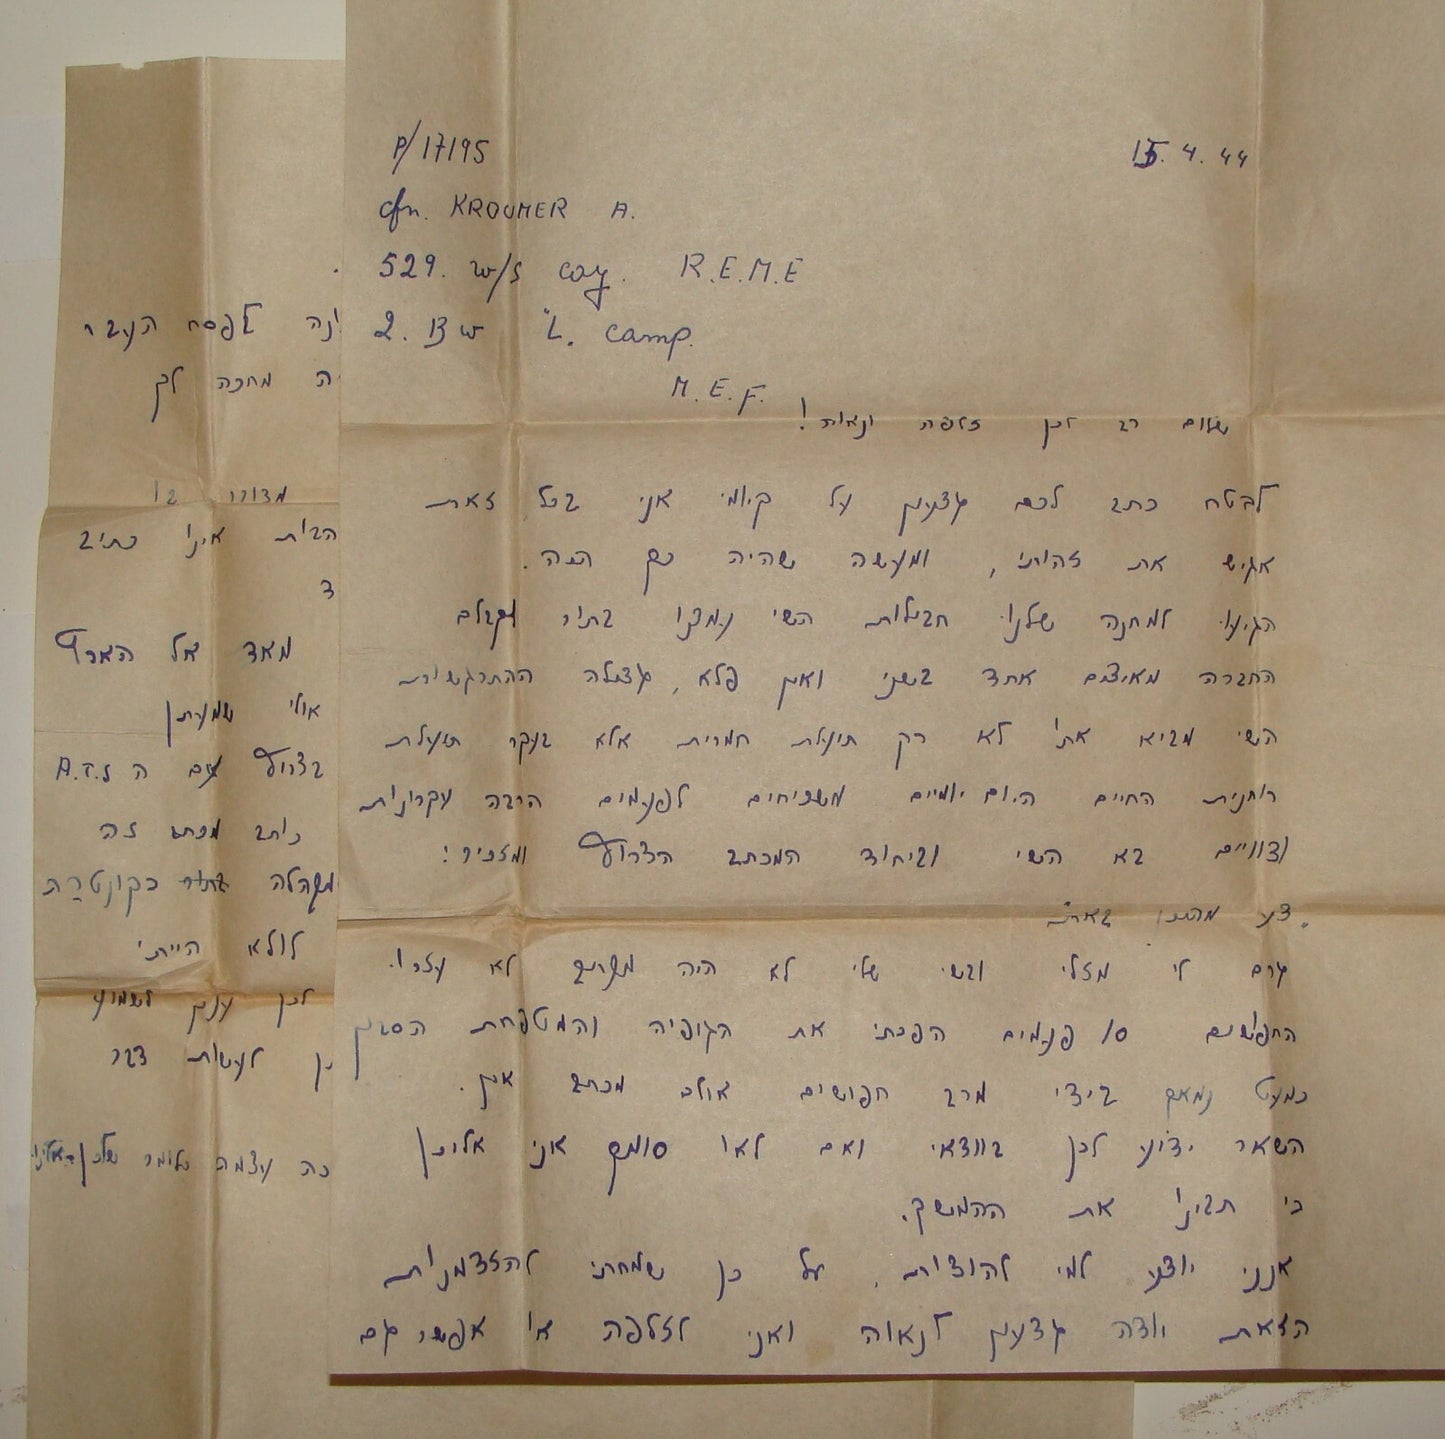 P/17195
15.4.44
cfn. KROUMER A.
529. w/s coy. R.E.M.E
2. BW "L. camp.
M.E.F.
שלום רב לכן זלפה ונאוה!
לבטח כתב לכם גדעון על קיומי אני בכל זאת
אגיש את זהותי, ומעשה שהיה כך היה.
הגיעו למחנה שלנו חבילות השי נמצנו בתור לקבלם
החברה מאיצים אחד בשני ואין פלא, גדולה ההתרגשות
השי מביא אתו לא רק תועלת חמרית אלא בעקר תועלת
רוחנית החיים היום יומיים משכיחים לפעמים הרבה עקרונות
וצוויים בא השי וביחוד המכתב הצרוף ומזכיר:
גרם לי מזלי ובשי שלי לא היה מכתב לא עזרו
החפושים 10 פעמים הפכתי את הגופיה והמטפחת הסבון
כמעט נמאס בידי מרב חפושים אולם מכתב אין.
השאר ידוע לכן בוודאי ואם לאו סומך אני אליכן
כי תבינו את ההמשך.
אנני יודע למי להודות, על כן שמחתי להזדמנות
הזאת יודה גדעון לנאוה ואני לזלפה או אפשר גם
לפסח העבר
מחכה לך
מדובר בו
הבית אינו כתיב
ד
מאד אל הארץ
אולי שמעתן
בצרוף עם ה A.T.S
כותב מכתב זה
מקהלה בתור כקונטרת
לולא הייתי
לכן ענין לשמוע
כן לעשות דבר
כה עצמה כלומר שלכן